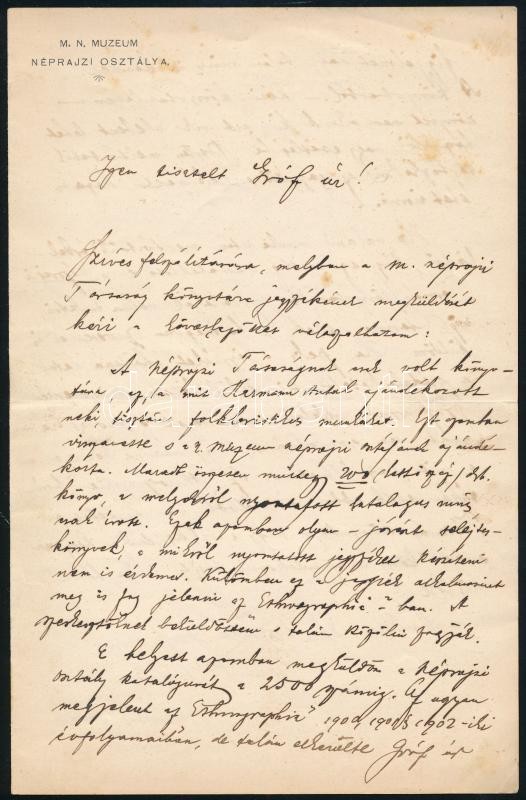 M. N. MUZEUM
NÉPRAJZI OSZTÁLYA.
Igen tisztelt Gróf úr!
Szíves felszólítására, melyben a m. néprajzi
Társaság könyvtára jegyzékének megküldését
kéri a következőket válaszolhatom:
A Néprajzi Társaságnak csak volt könyv-
tára az a mit Herrmann Antal ajándékozott
neki tisztán folklorisztikus munkákat. Ezt azonban
visszavette s a n. muzeum néprajzi osztályának ajándé-
kozta. Maradt összesen mintegy 200 db.
könyv, a melyekről nyomtatott katalogus
Ezek azonban olyan
könyvek, a mikről nyomtatott jegyzéket készíteni
nem is érdemes. Különben ez a jegyzék alkalmasint
meg is fog jelenni az Ethnographiá-ban. A
szerkesztőnek beküldöttem s talán közölni fogják.
E helyett azonban megküldöm a Néprajzi
osztály katalógusát a 2500 számig. Ez ugyan
megjelent az Ethnographia 1900, 1901 és 1902-iki
évfolyamaiban, de talán elkerülte Gróf úr